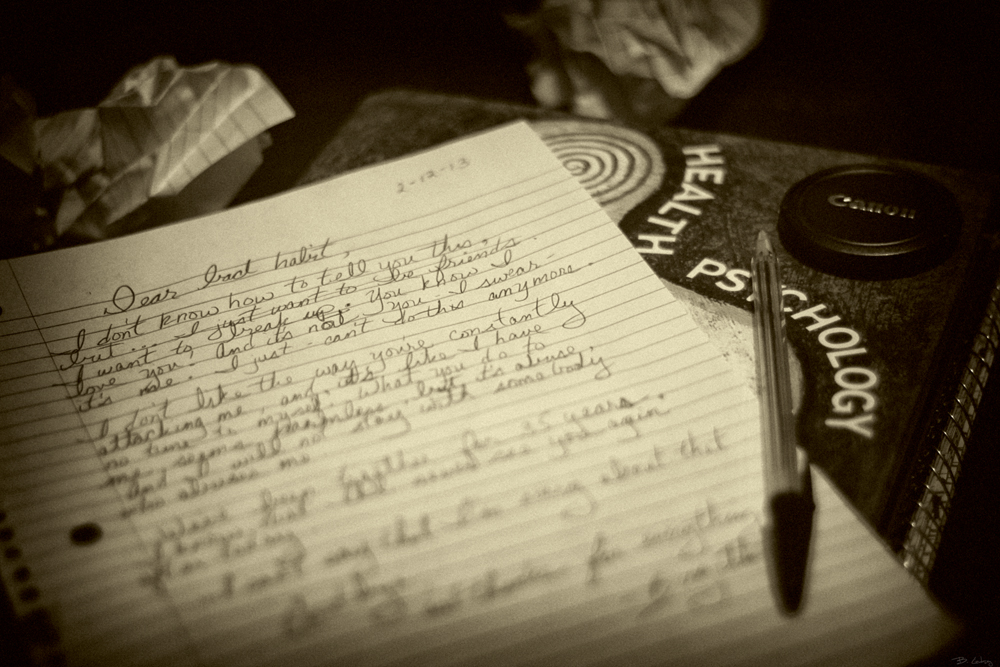 2-12-13
Dear bad habit,
I don't know how to tell you this.
but... I just want to be friends.
I want to break up. You know I
love you and its not you I swear
it's me. I just can't do this anymore.
I don't like the way you're constantly
attacking me, and it's like I have
no time to myself. What you do to
me seems harmless but it's abuse.
And I will not stay with somebody
who abuses me
We've been together for 25 years
from today never see you again.
I won't say that I'm sorry about that
Goodbye for everything
HEALTH
PSYCHOLOGY
Canon